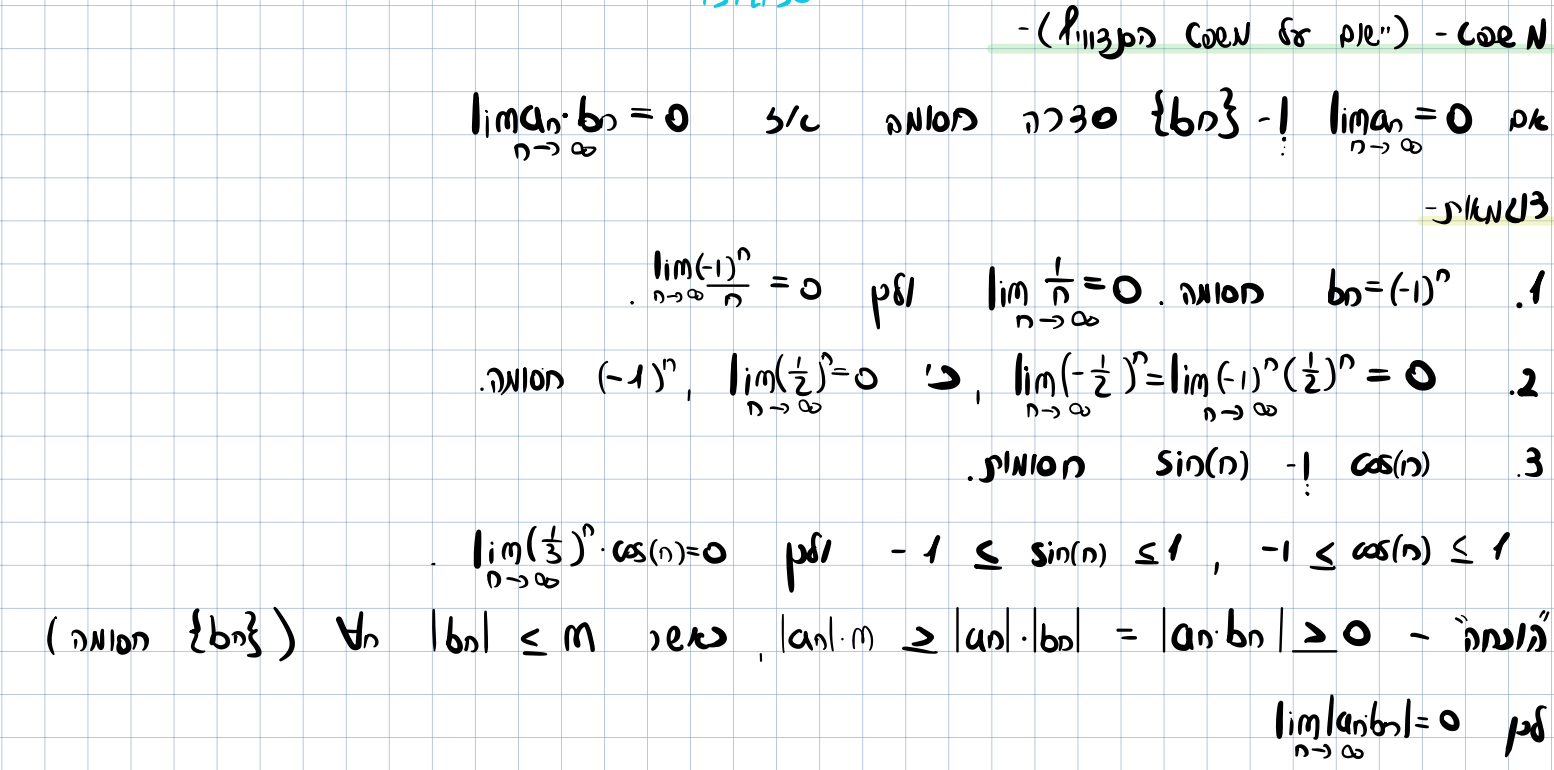 משפט - ("יישום של משפט הסנדוויץ')-
אם lim_{n→∞} an = 0 ו- {bn} סדרה חסומה אז lim_{n→∞} an·bn = 0
דוגמאות-
1. bn=(-1)^n חסומה. lim_{n→∞} 1/n = 0 ולכן lim_{n→∞} (-1)^n/n = 0.
2. lim_{n→∞} (-1/2)^n = lim_{n→∞} (-1)^n (1/2)^n = 0, כי lim_{n→∞} (1/2)^n = 0, (-1)^n חסומה.
3. cos(n) ו- sin(n) חסומות.
-1 ≤ cos(n) ≤ 1, -1 ≤ sin(n) ≤ 1 ולכן lim_{n→∞} (1/3)^n · cos(n) = 0.
"הוכחה" - 0 ≤ |an·bn| = |an|·|bn| ≤ |an|·m, כאשר |bn| ≤ m ∀n ({bn} חסומה)
לכן lim_{n→∞} |an·bn| = 0